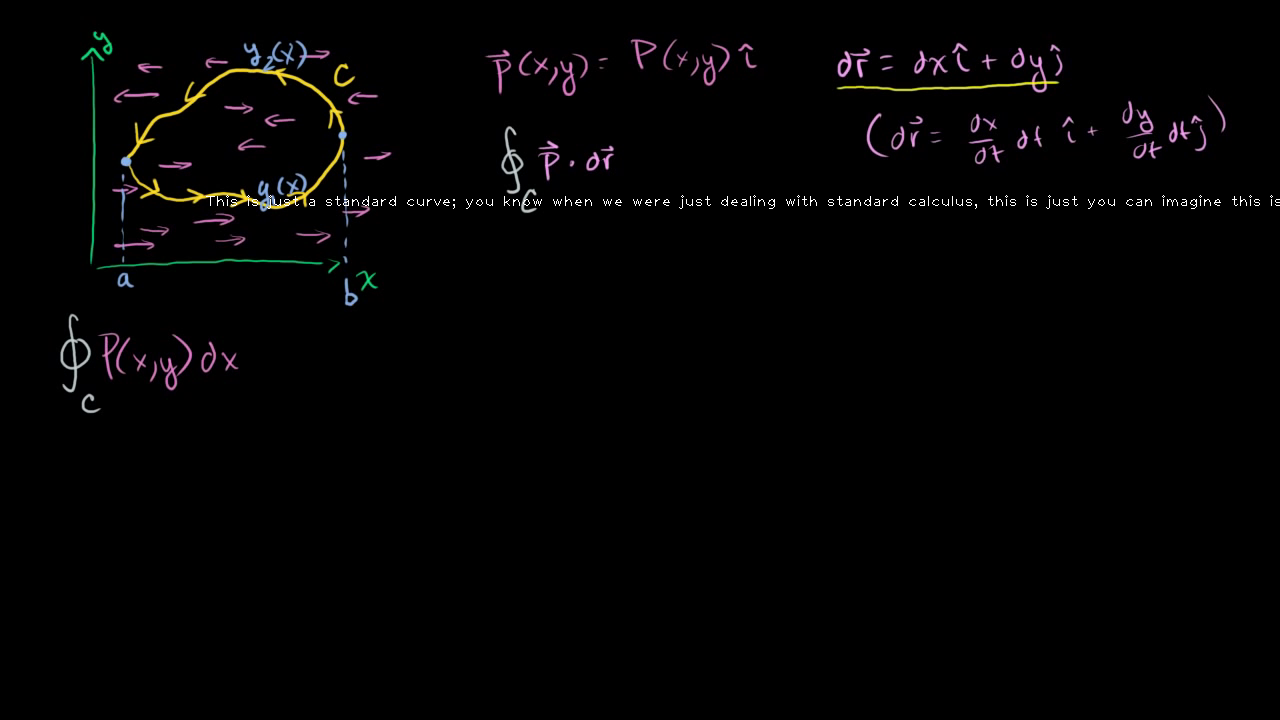 y
y₂(x)
C
P⃗(x,y) = P(x,y) î
dr⃗ = dx î + dy ĵ
(dr⃗ = dx/dt dt î + dy/dt dt ĵ)
∮_C P⃗ · dr⃗
y₁(x)
This is just a standard curve; you know when we were just dealing with standard calculus, this is just you can imagine this is
a
b
x
∮_C P(x,y) dx